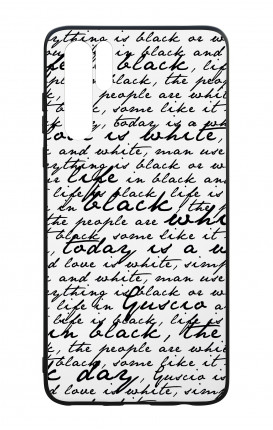 ything is black or w
in black and
black, life
n black, the peop
people are whi
black, some like it
, today is a w
love is white,
and white, man use
ything is black or w
life in black and
life is black, life is
in black, the
the people are whi
black, some like it
today is a w
d love is white, simp
and white, man use
ything is black or w
life in Guscio a
life is black, life is
in black, the
k, the people are whi
black, some like it
day, Guscio is
d love is white, simp